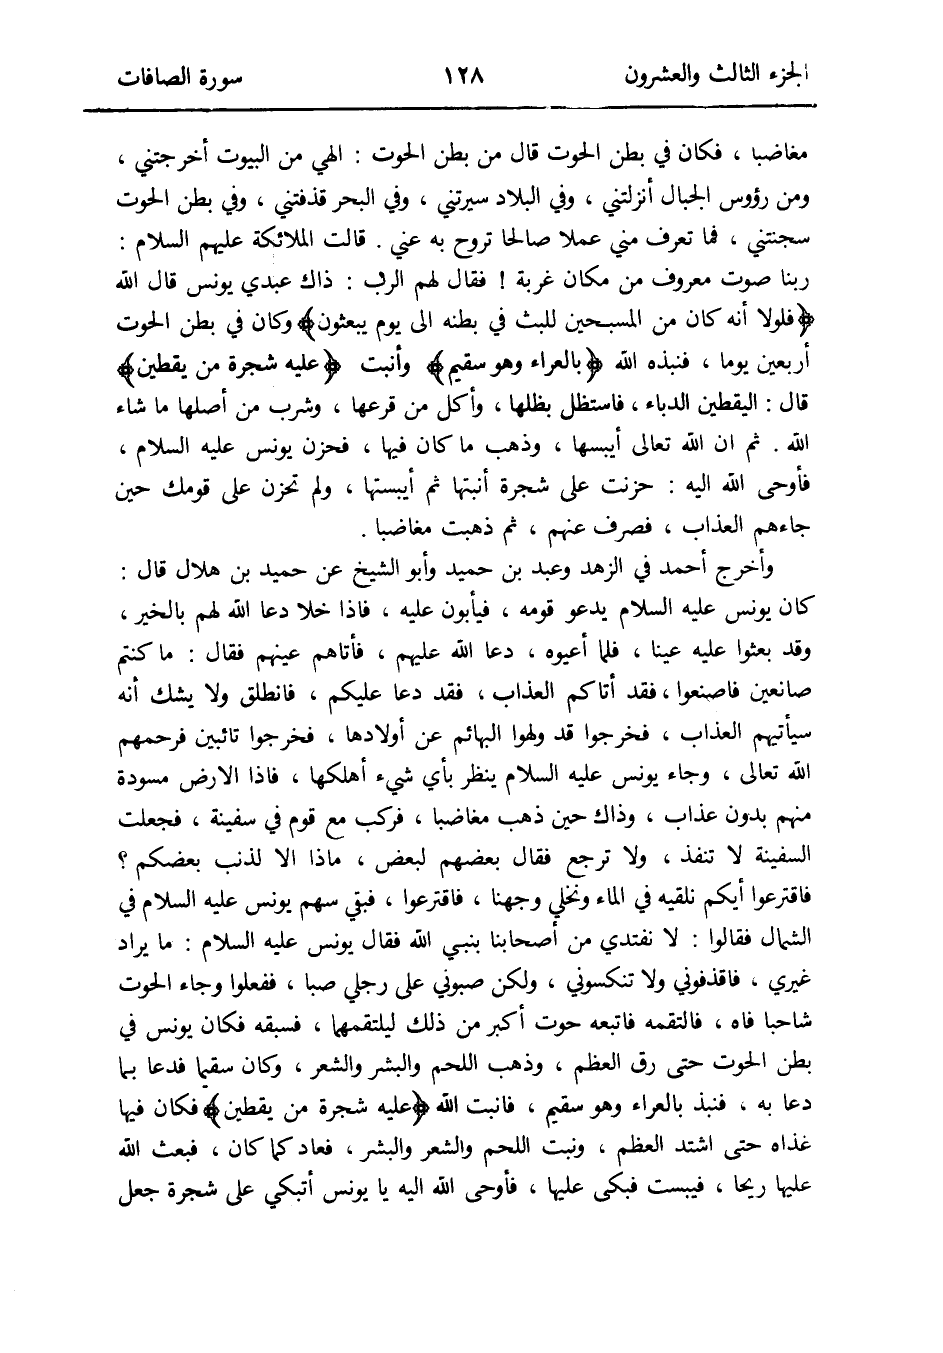 الجزء الثالث والعشرون ١٢٨ سورة الصافات
مغاضبا ، فكان في بطن الحوت قال من بطن الحوت : الهي من البيوت أخرجتني ،
ومن رؤوس الجبال أنزلتني ، وفي البلاد سيرتني ، وفي البحر قذفتني ، وفي بطن الحوت
سجنتني ، فما تعرف مني عملا صالحا تروح به عني . قالت الملائكة عليهم السلام :
ربنا صوت معروف من مكان غربة ! فقال لهم الرب : ذاك عبدي يونس قال الله
﴿فلولا أنه كان من المسبحين للبث في بطنه الى يوم يبعثون﴾ وكان في بطن الحوت
أربعين يوما ، فنبذه الله ﴿بالعراء وهو سقيم﴾ وأنبت ﴿عليه شجرة من يقطين﴾
قال : اليقطين الدباء ، فاستظل بظلها ، وأكل من قرعها ، وشرب من أصلها ما شاء
الله . ثم ان الله تعالى أيبسها ، وذهب ما كان فيها ، فحزن يونس عليه السلام ،
فأوحى الله اليه : حزنت على شجرة أنبتها ثم أيبستها ، ولم تحزن على قومك حين
جاءهم العذاب ، فصرف عنهم ، ثم ذهبت مغاضبا .
وأخرج أحمد في الزهد وعبد بن حميد وأبو الشيخ عن حميد بن هلال قال :
كان يونس عليه السلام يدعو قومه ، فيأبون عليه ، فاذا خلا دعا الله لهم بالخير ،
وقد بعثوا عليه عينا ، فلما أعيوه ، دعا الله عليهم ، فأتاهم عينهم فقال : ما كنتم
صانعين فاصنعوا ، فقد أتاكم العذاب ، فقد دعا عليكم ، فانطلق ولا يشك أنه
سيأتيهم العذاب ، فخرجوا قد ولهوا البهائم عن أولادها ، فخرجوا تائبين فرحمهم
الله تعالى ، وجاء يونس عليه السلام ينظر بأي شيء أهلكها ، فاذا الارض مسودة
منهم بدون عذاب ، وذاك حين ذهب مغاضبا ، فركب مع قوم في سفينة ، فجعلت
السفينة لا تنفذ ، ولا ترجع فقال بعضهم لبعض ، ماذا الا لذنب بعضكم ؟
فاقترعوا أيكم نلقيه في الماء ونخلي وجهنا ، فاقترعوا ، فبقي سهم يونس عليه السلام في
الشمال فقالوا : لا نفتدي من أصحابنا بنبي الله فقال يونس عليه السلام : ما يراد
غيري ، فاقذفوني ولا تنكسوني ، ولكن صبوني على رجلي صبا ، ففعلوا وجاء الحوت
شاحبا فاه ، فالتقمه فاتبعه حوت أكبر من ذلك ليلتقمهما ، فسبقه فكان يونس في
بطن الحوت حتى رق العظم ، وذهب اللحم والبشر والشعر ، وكان سقيما فدعا بما
دعا به ، فنبذ بالعراء وهو سقيم ، فانبت الله ﴿عليه شجرة من يقطين﴾ فكان فيها
غذاه حتى اشتد العظم ، ونبت اللحم والشعر والبشر ، فعاد كما كان ، فبعث الله
عليها ريحا ، فيبست فبكى عليها ، فأوحى الله اليه يا يونس أتبكي على شجرة جعل